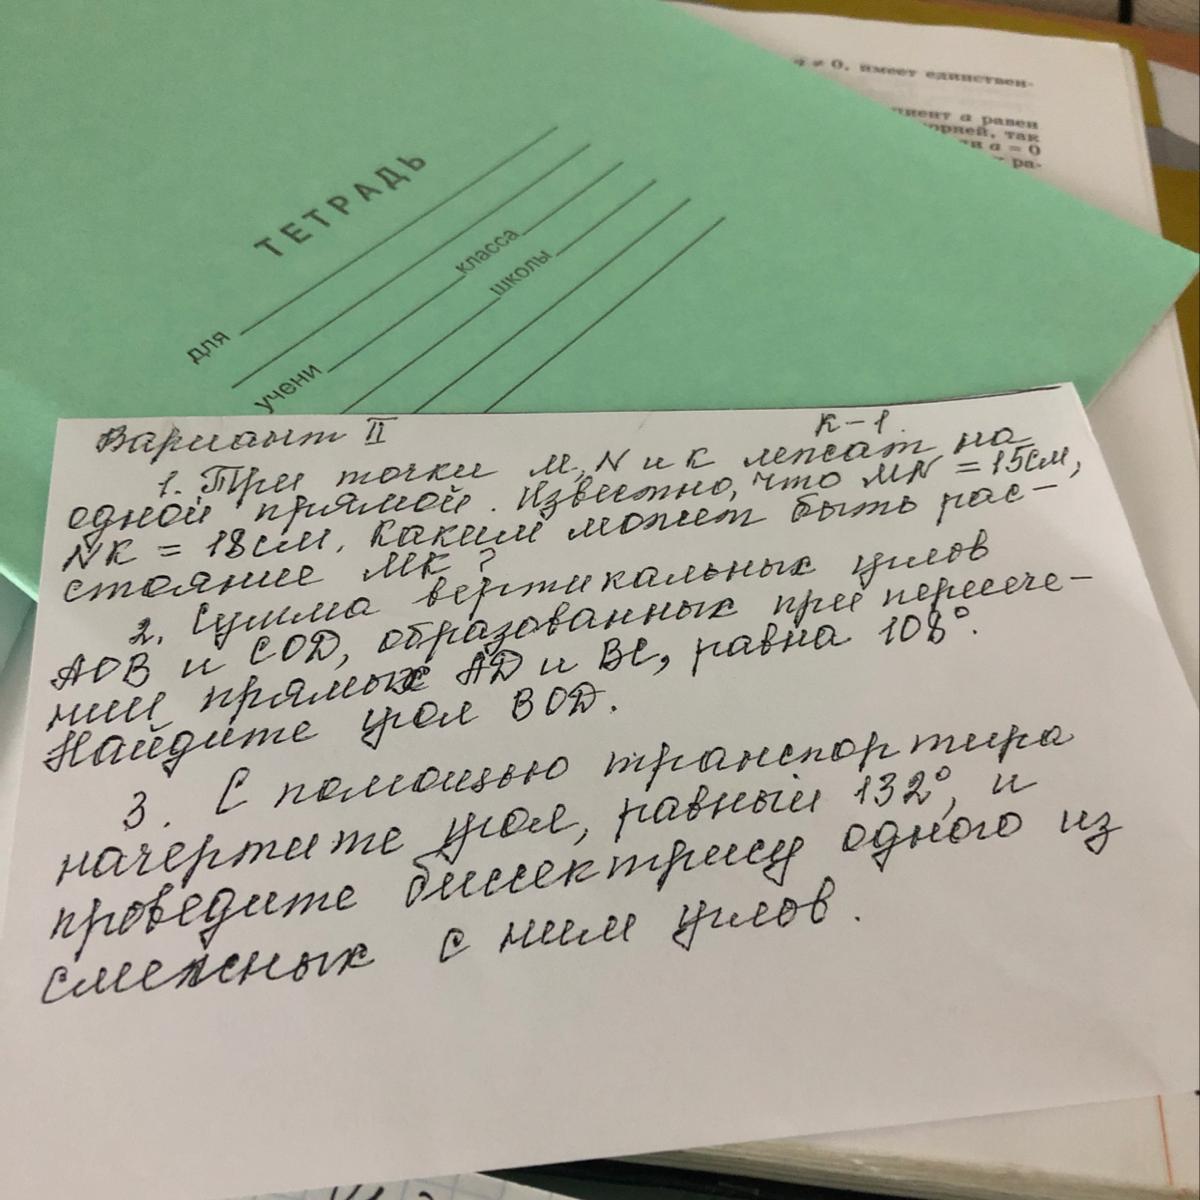 а ≠ 0, имеет единствен-
циент а равен
корней, так
ли а = 0
ра-
ТЕТРАДЬ
для
учени
класса
школы
Вариант II
К-1.
1. Три точки M, N и K лежат на
одной прямой. Известно, что MN = 15 см,
NK = 18 см. Каким может быть рас-
стояние MK?
2. Сумма вертикальных углов
AOB и COD, образованных при пересече-
нии прямых AD и BC, равна 108°.
Найдите угол BOD.
3. С помощью транспортира
начертите угол, равный 132°, и
проведите биссектрису одного из
смежных с ним углов.